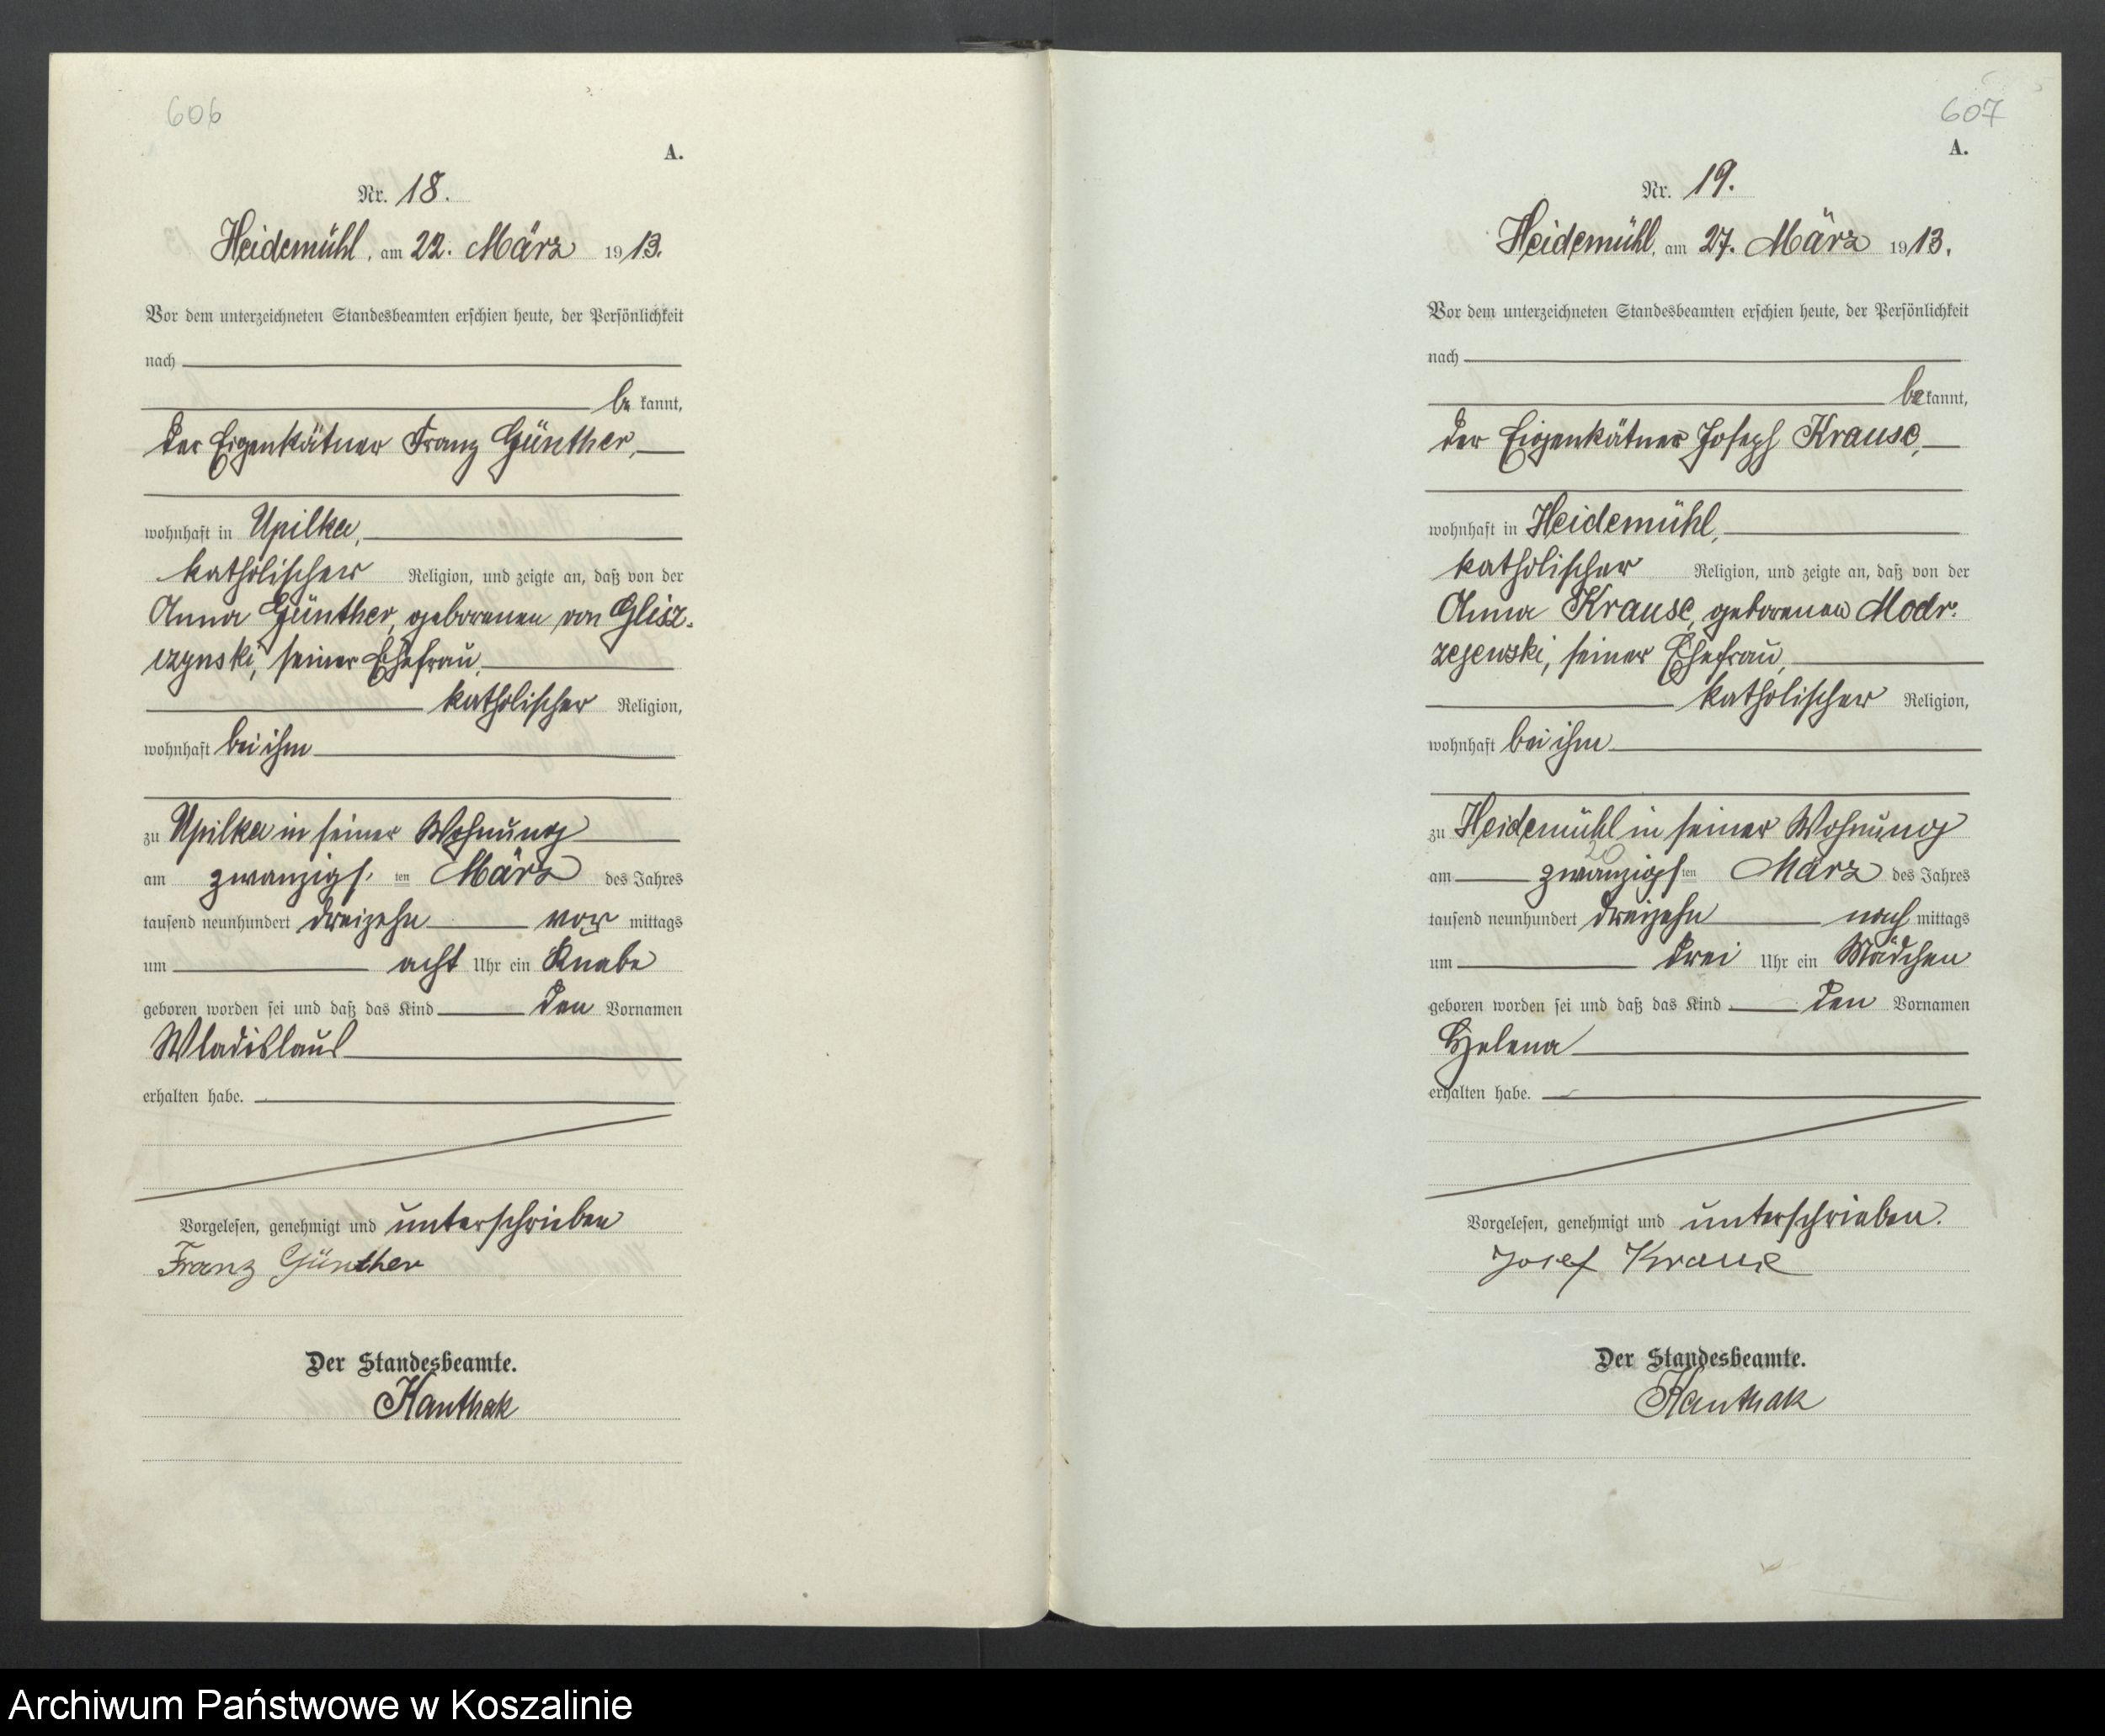 606
A.
Nr. 18.
Heidemühl, am 22. März 1913.
Vor dem unterzeichneten Standesbeamten erschien heute, der Persönlichkeit
nach
be kannt,
der Eigenkätner Franz Günther,
wohnhaft in Upilka,
katholischer Religion, und zeigte an, daß von der
Anna Günther, geborenen von Glisz-
czynski, seiner Ehefrau,
katholischer Religion,
wohnhaft bei ihm
zu Upilka in seiner Wohnung
am zwanzigs. ten März des Jahres
tausend neunhundert dreizehn vor mittags
um acht Uhr ein Knabe
geboren worden sei und daß das Kind den Vornamen
Wladislaus
erhalten habe.
Vorgelesen, genehmigt und unterschrieben
Franz Günther
Der Standesbeamte.
Kanthak
607
A.
Nr. 19.
Heidemühl, am 27. März 1913.
Vor dem unterzeichneten Standesbeamten erschien heute, der Persönlichkeit
nach
be kannt,
der Eigenkätner Joseph Krause,
wohnhaft in Heidemühl,
katholischer Religion, und zeigte an, daß von der
Anna Krause, geborenen Modr-
zejewski, seiner Ehefrau,
katholischer Religion,
wohnhaft bei ihm
zu Heidemühl in seiner Wohnung
20
am zwanzigs ten März des Jahres
tausend neunhundert dreizehn nach mittags
um drei Uhr ein Mädchen
geboren worden sei und daß das Kind den Vornamen
Helena
erhalten habe.
Vorgelesen, genehmigt und unterschrieben.
Josef Krause
Der Standesbeamte.
Kanthak
Archiwum Państwowe w Koszalinie